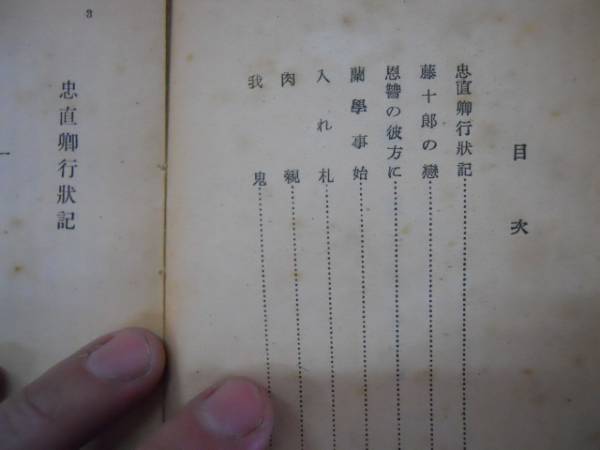 目次
忠直卿行狀記
藤十郎の戀
恩讐の彼方に
蘭學事始
入れ札
肉親
我鬼
3
忠直卿行狀記
一